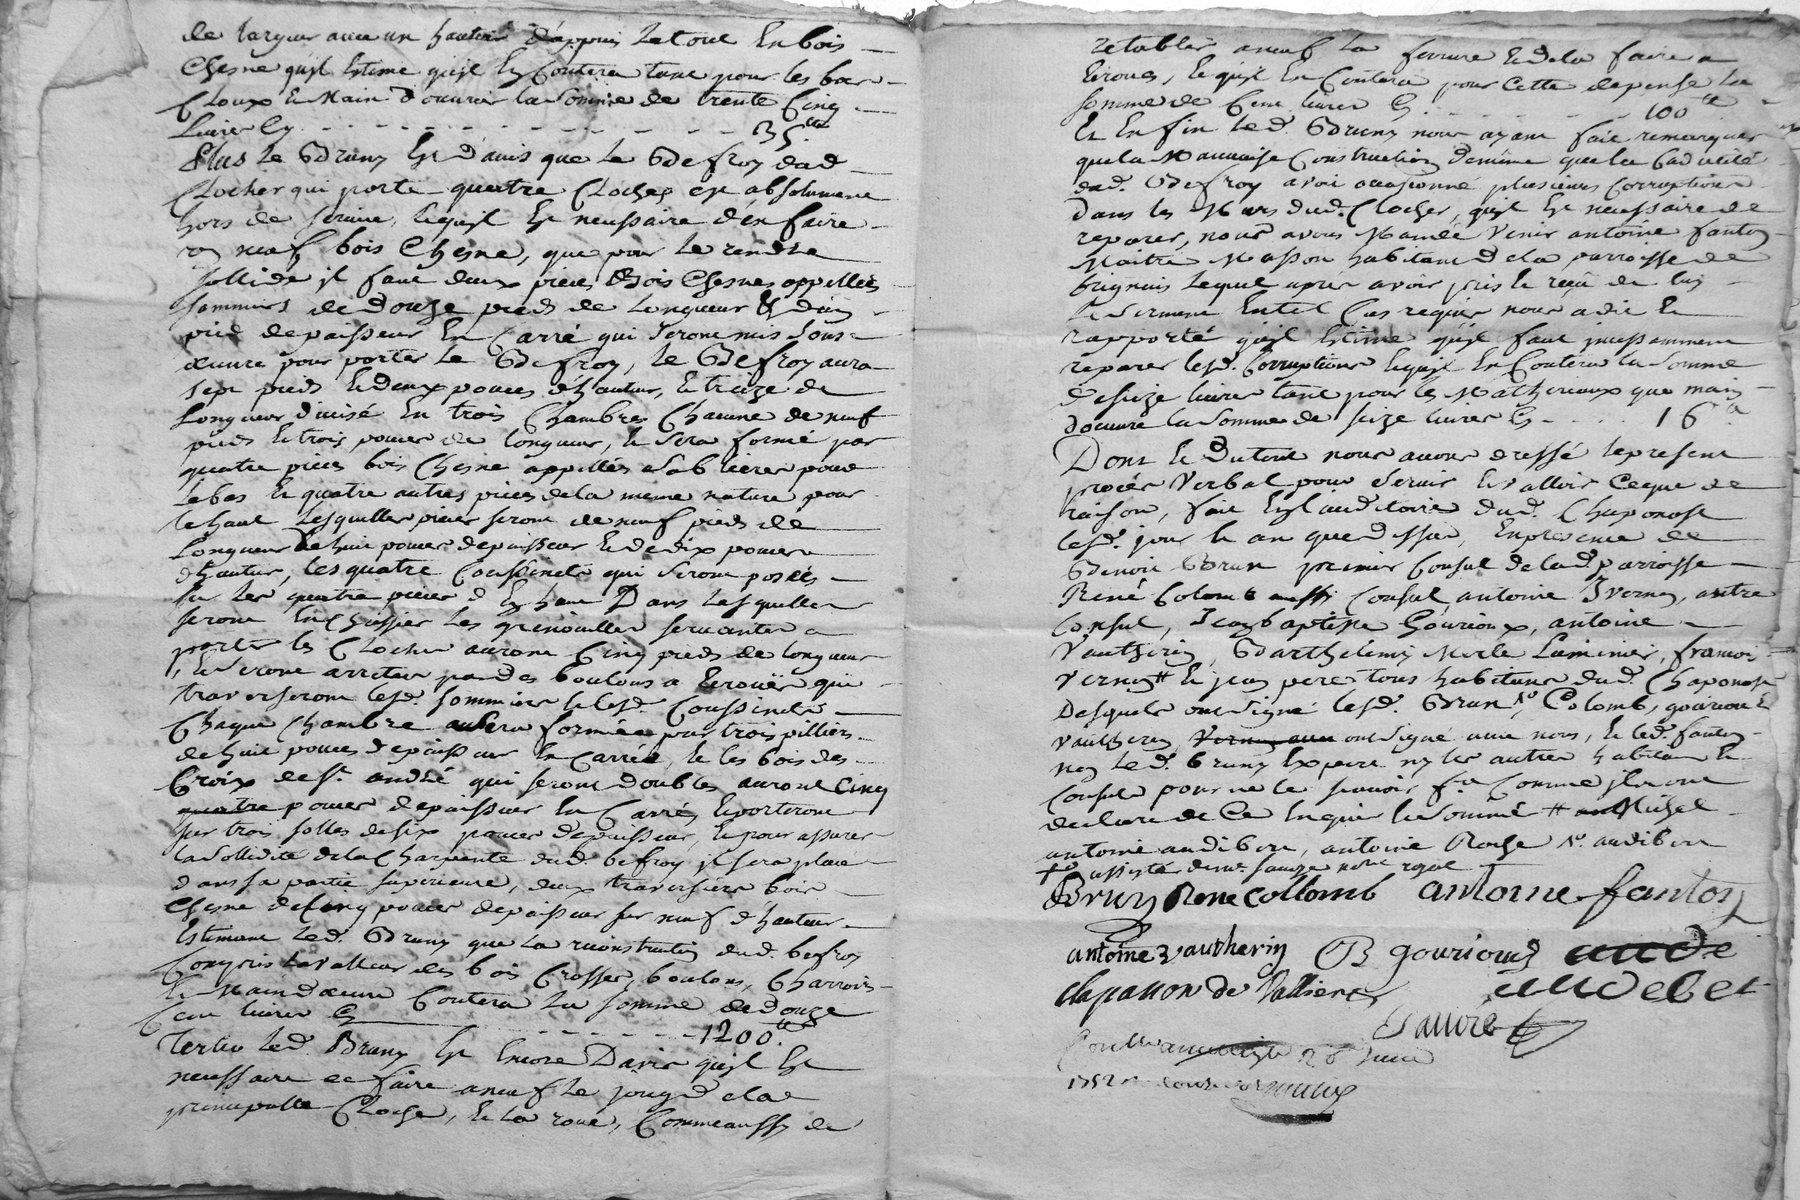 de largeur avec un hauteur d'appuis Letout En bois
Chesne qu'il Estime qu'il En Coutera tant pour les bois
Cloux Et Main d'oeuvres la Somme de trente Cinq
Livres Cy - - - - - - 35 ^tt
Plus Le Sd Bruny Est d'avis que Le Bdefroy dud
Clocher qui porte quattre Cloches est absolument
hors de service, Et qu'il Est neussaire d'en faire
un neuf bois Chesne, que pour Le rendre
sollide il faut deux pieces Bois Chesnes appellés
sommiers de douze pieds de Longueur Et d'un
pied depaisseur En Carré qui Seront mis Sous
oeuvre pour porter Le Bdefroy, Le Bdefroy aura
sept pieds Et deux pouces d'hauteur, Et treize de
Longueur divisé En trois Chambres Chacune de neuf
pieds Et trois pouces de longueur, Et Sera formé par
quatre pieces bois Chesne appellés Sablieres pour
Le bas Et quatre autres pieces de la meme nature pour
le haut Lesquelles pieces seront de neuf pieds de
Longueur de huit pouces depaisseur Et de dix pouces
d'hauteur, les quatre Coussinets qui Seront posées
sur Les quatre pieces d'En haut Dans Lesquelles
seront Enchassées Les grenouilles servantes a
porter les Cloches auront Cinq pieds de longueur
Et Seront arretées par des boulons a Ecroües qui
traverseront lesd. Sommiers Et lesd. Coussinets
Chaque Chambre sera formée par trois pilliers
de huit pouces depaisseur En Carrée, Et les bois des
Croix de St. andré qui seront doubles auront Cinq
pouces depaisseur En Carrés Et porteront
sur trois solles de six pouces depaisseur, Et pour assurer
la Sollidité de la Charpente dud. befroy il sera placé
dans sa partie superieure, deux traversieres bois
Chesne de Cinq pouces depaisseur sur neuf d'hauteur
Estimant Led. Bruny que La reconstruction dud. befroy
Compris La valleur des bois Crosses, boulons, Charrois
Et Main d'oeuvre Coutera La somme de douze
Cent livres Cy - - - - 1200 ^tt
Tertio Led. Bruny Est Encore Davis qu'il Est
neussaire de faire a neuf Le joug de la
principalle Cloche, Et La roue, Comme aussy de
retablir a neuf La ferrure Et de la faire a
Ecroues, Et qu'il En Coutera pour Cette depense La
somme de Cent livres Cy - - - - 100 ^tt
Et Enfin Led. Bruny nous ayant fait remarquer
que la Mauvaise Construction de meme que la Caducité
dud. Bdefroy avoit occasionné plusieurs Corruptions
dans les Murs dud. Clocher, qu'il Est neussaire de
reparer, nous avons Mandé Venir antoine fanton
Maitre Masson habitant de la parroisse de
brignais Lequel apres avoir pris Et reçû de luy
Le Serment En tel Cas requis nous a dit Et
rapporté qu'il Estime qu'il faut
reparer lesd. Corruptions Et qu'il En Coutera la Somme
de seize livres tant pour les Matheriaux que main
d'oeuvre la Somme de seize livres Cy - - - 16 ^tt
Dont Et Du tout nous avons dressé Le present
procès Verbal pour Servir Et valloir Ce que de
raison, fait En l'auditoire dud. Chaponost
lesd. jour Et an que dessus, En presence de
Benoit Brun premier Consul de lad. parroisse
René Colomb aussy Consul, antoine Ivernay, autre
Consul, Jean baptiste Gourioux, antoine
Vautherin, Barthelemy Merle Luminier, francois
Vernay # Et jean pere tous habitans dud. Chaponost
Desquels ont Signé lesd. Brun, Colomb, gourioux
vautherin, ont Signé avec nous, Et led. fanton
non Led. bruny Expert ny les autres habitans Et
Consuls pour ne le scavoir fe. Comme ils ont
declaré de Ce Enquis Et Sommé # Michel
antoine audibert, antoine Roche Sr. audibert
+ assisté de me. sauze notre royal
Brun Rene Collomb antoine fanton
antoine Vautherin B gourioud
Clapasson de Vallieres audebet
Sauze
26 Juin
1752